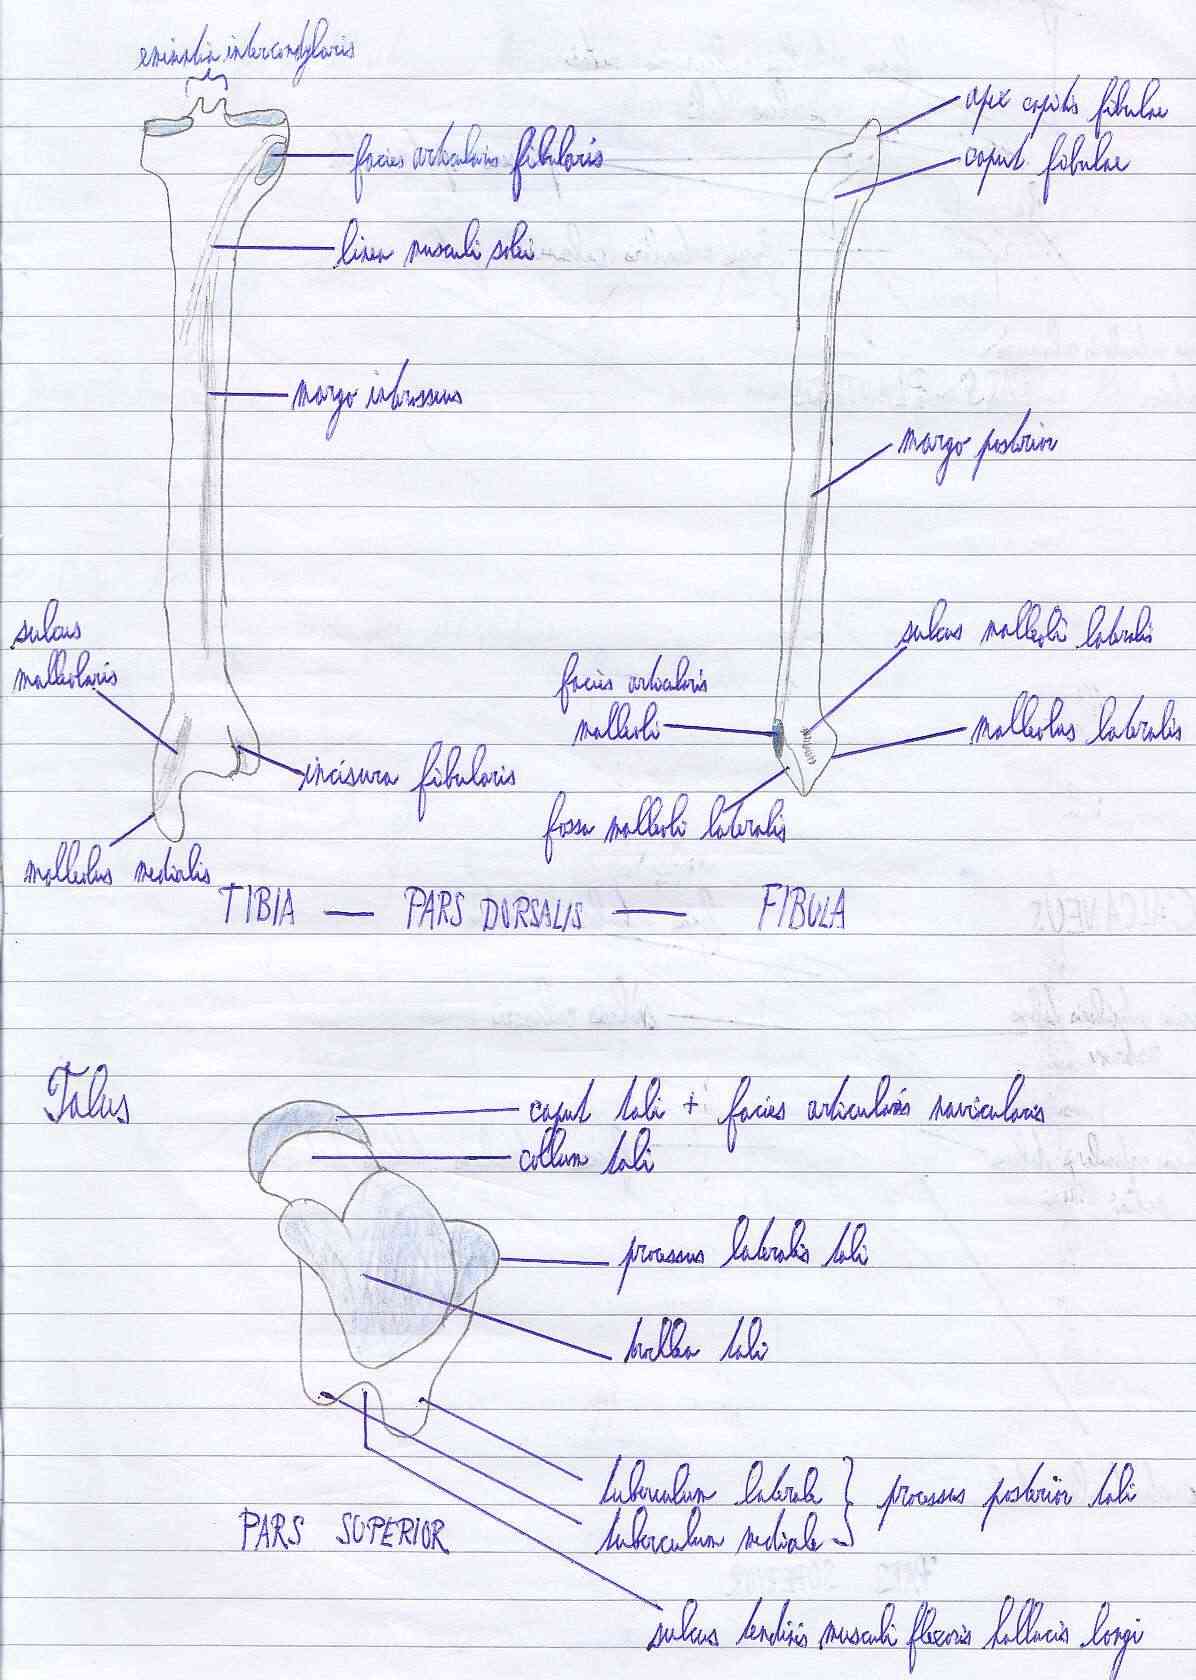 eminentia intercondylaris
facies articularis fibularis
linea musculi solei
margo interosseus
sulcus
malleolaris
incisura fibularis
malleolus medialis
apex capitis fibulae
caput fibulae
margo posterior
sulcus malleoli lateralis
facies articularis
malleoli
malleolus lateralis
fossa malleoli lateralis
TIBIA — PARS DORSALIS — FIBULA
Talus
caput tali + facies articularis navicularis
collum tali
processus lateralis tali
trochlea tali
tuberculum laterale } processus posterior tali
tuberculum mediale
PARS SUPERIOR
sulcus tendinis musculi flexoris hallucis longi